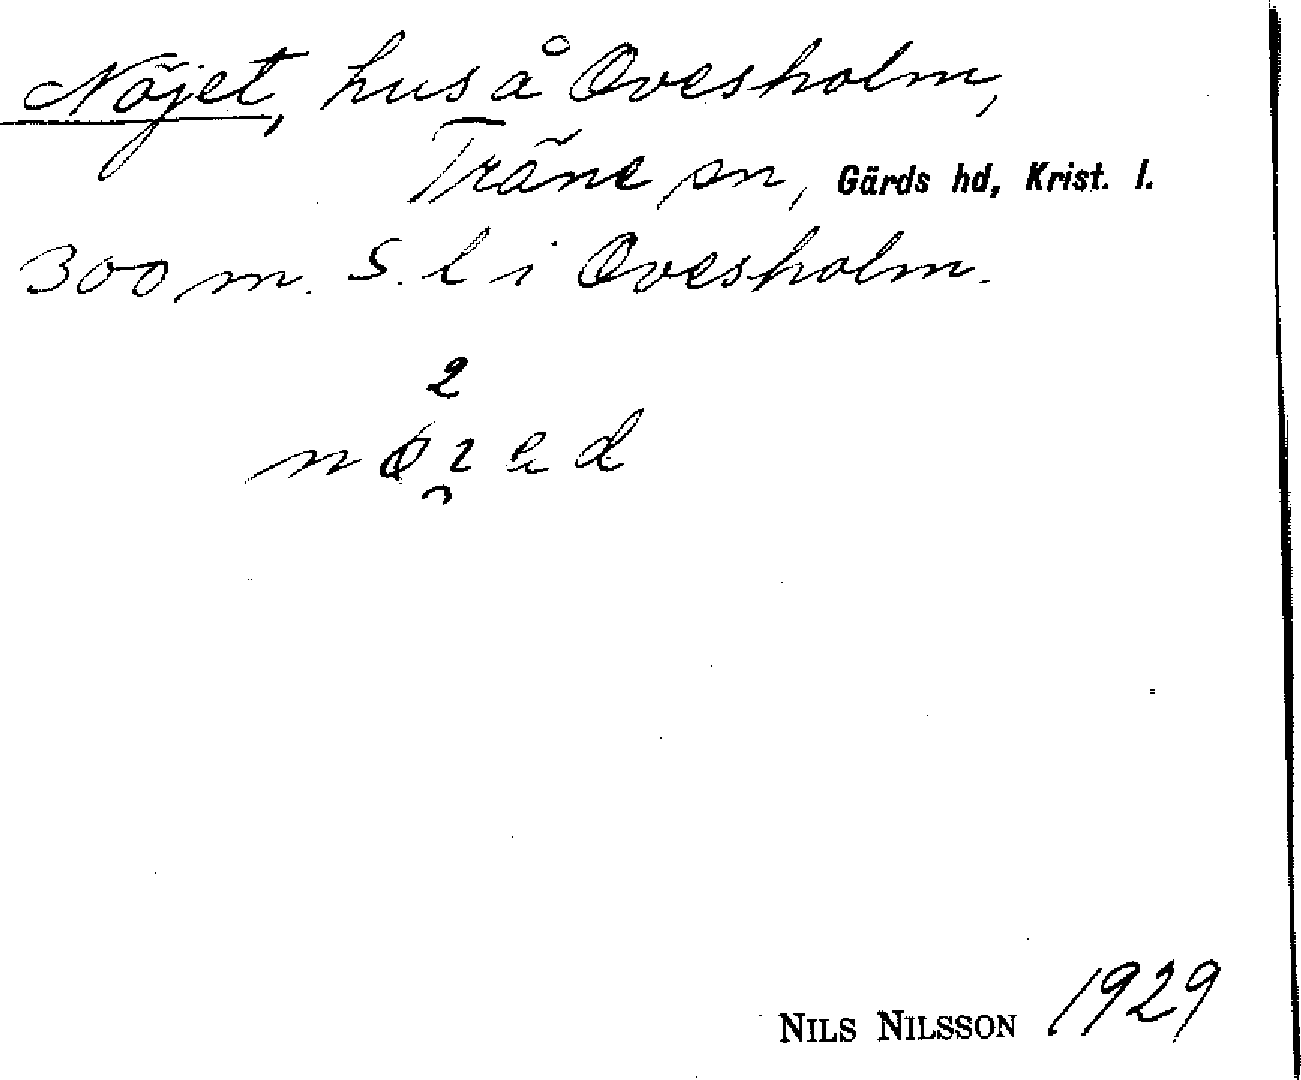 Nöjet, hus å Ovesholm,
Träne sn, Gärds hd, Krist. l.
300 m. S. l i Ovesholm.
2
nøɿed
NILS NILSSON 1929